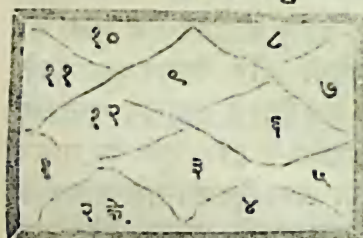 १० ८
११ ९ ७
१२ ६
१ ३ ५
२ के. ४